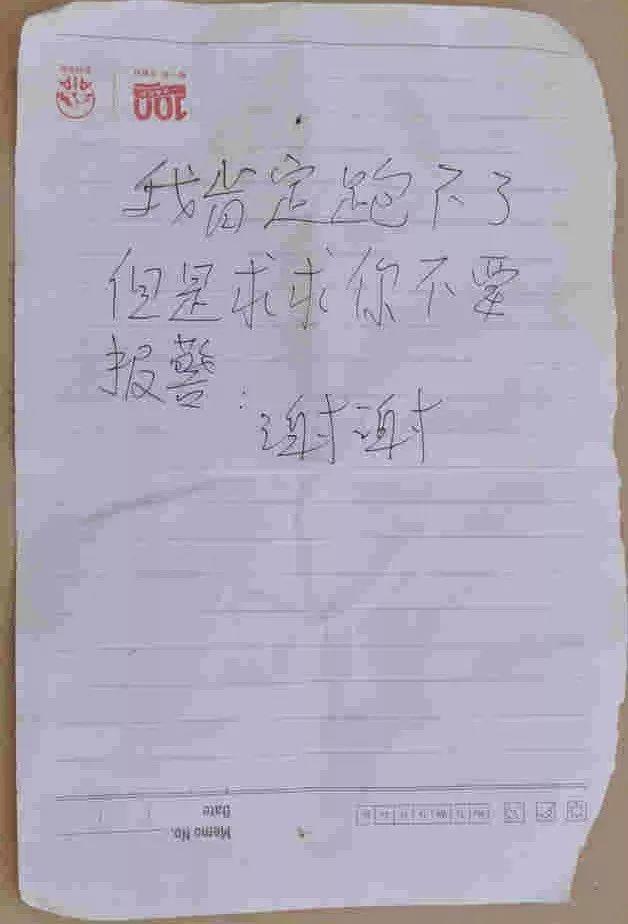 100
我肯定跑不了
但是求求你不要
报警：
谢谢
Date
Memo No.